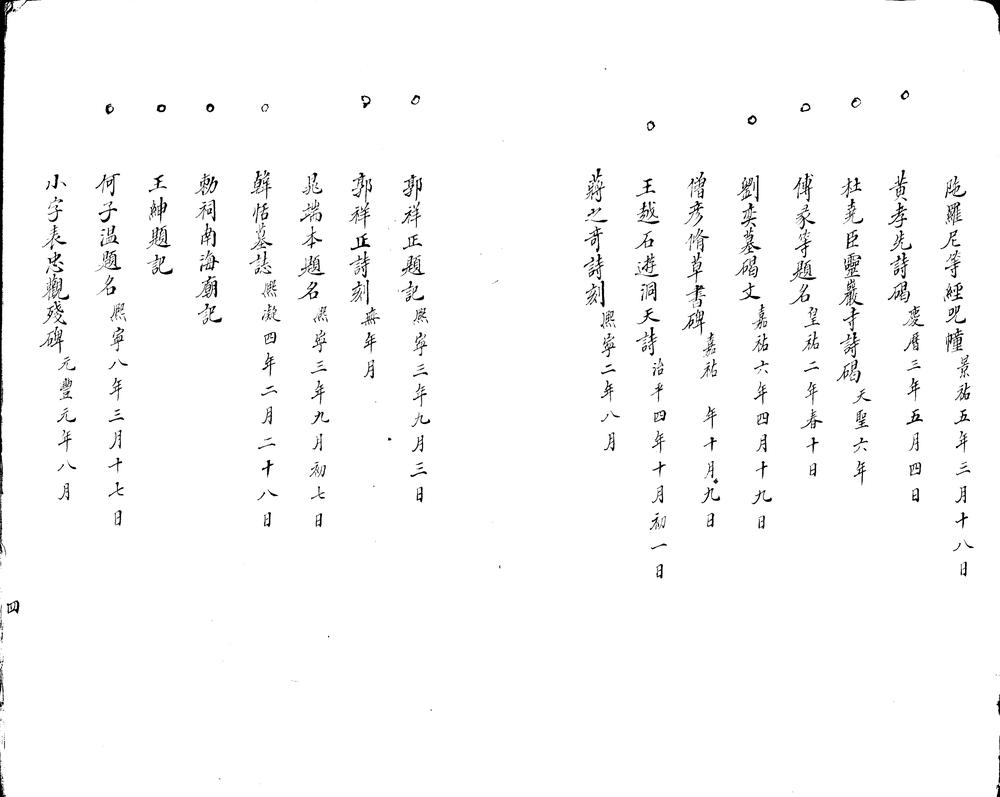 陁羅尼等經咒幢 景祐五年三月十八日
○ 黄孝先詩碣 慶曆三年五月四日
○ 杜堯臣靈巖寺詩碣 天聖六年
○ 傅彖等題名 皇祐二年春十日
○ 劉奕墓碣文 嘉祐六年四月十九日
僧彦脩草書碑 嘉祐 年十月九日
○ 王越石遊洞天詩 治平四年十月初一日
蔣之奇詩刻 熙寧二年八月
○ 郭祥正題記 熙寧三年九月三日
○ 郭祥正詩刻 無年月
晁端本題名 熙寧三年九月初七日
○ 韓恬墓誌 熙凝四年二月二十八日
○ 勅祠南海廟記
○ 王紳題記
○ 何子溫題名 熙寧八年三月十七日
小字表忠觀殘碑 元豐元年八月
四